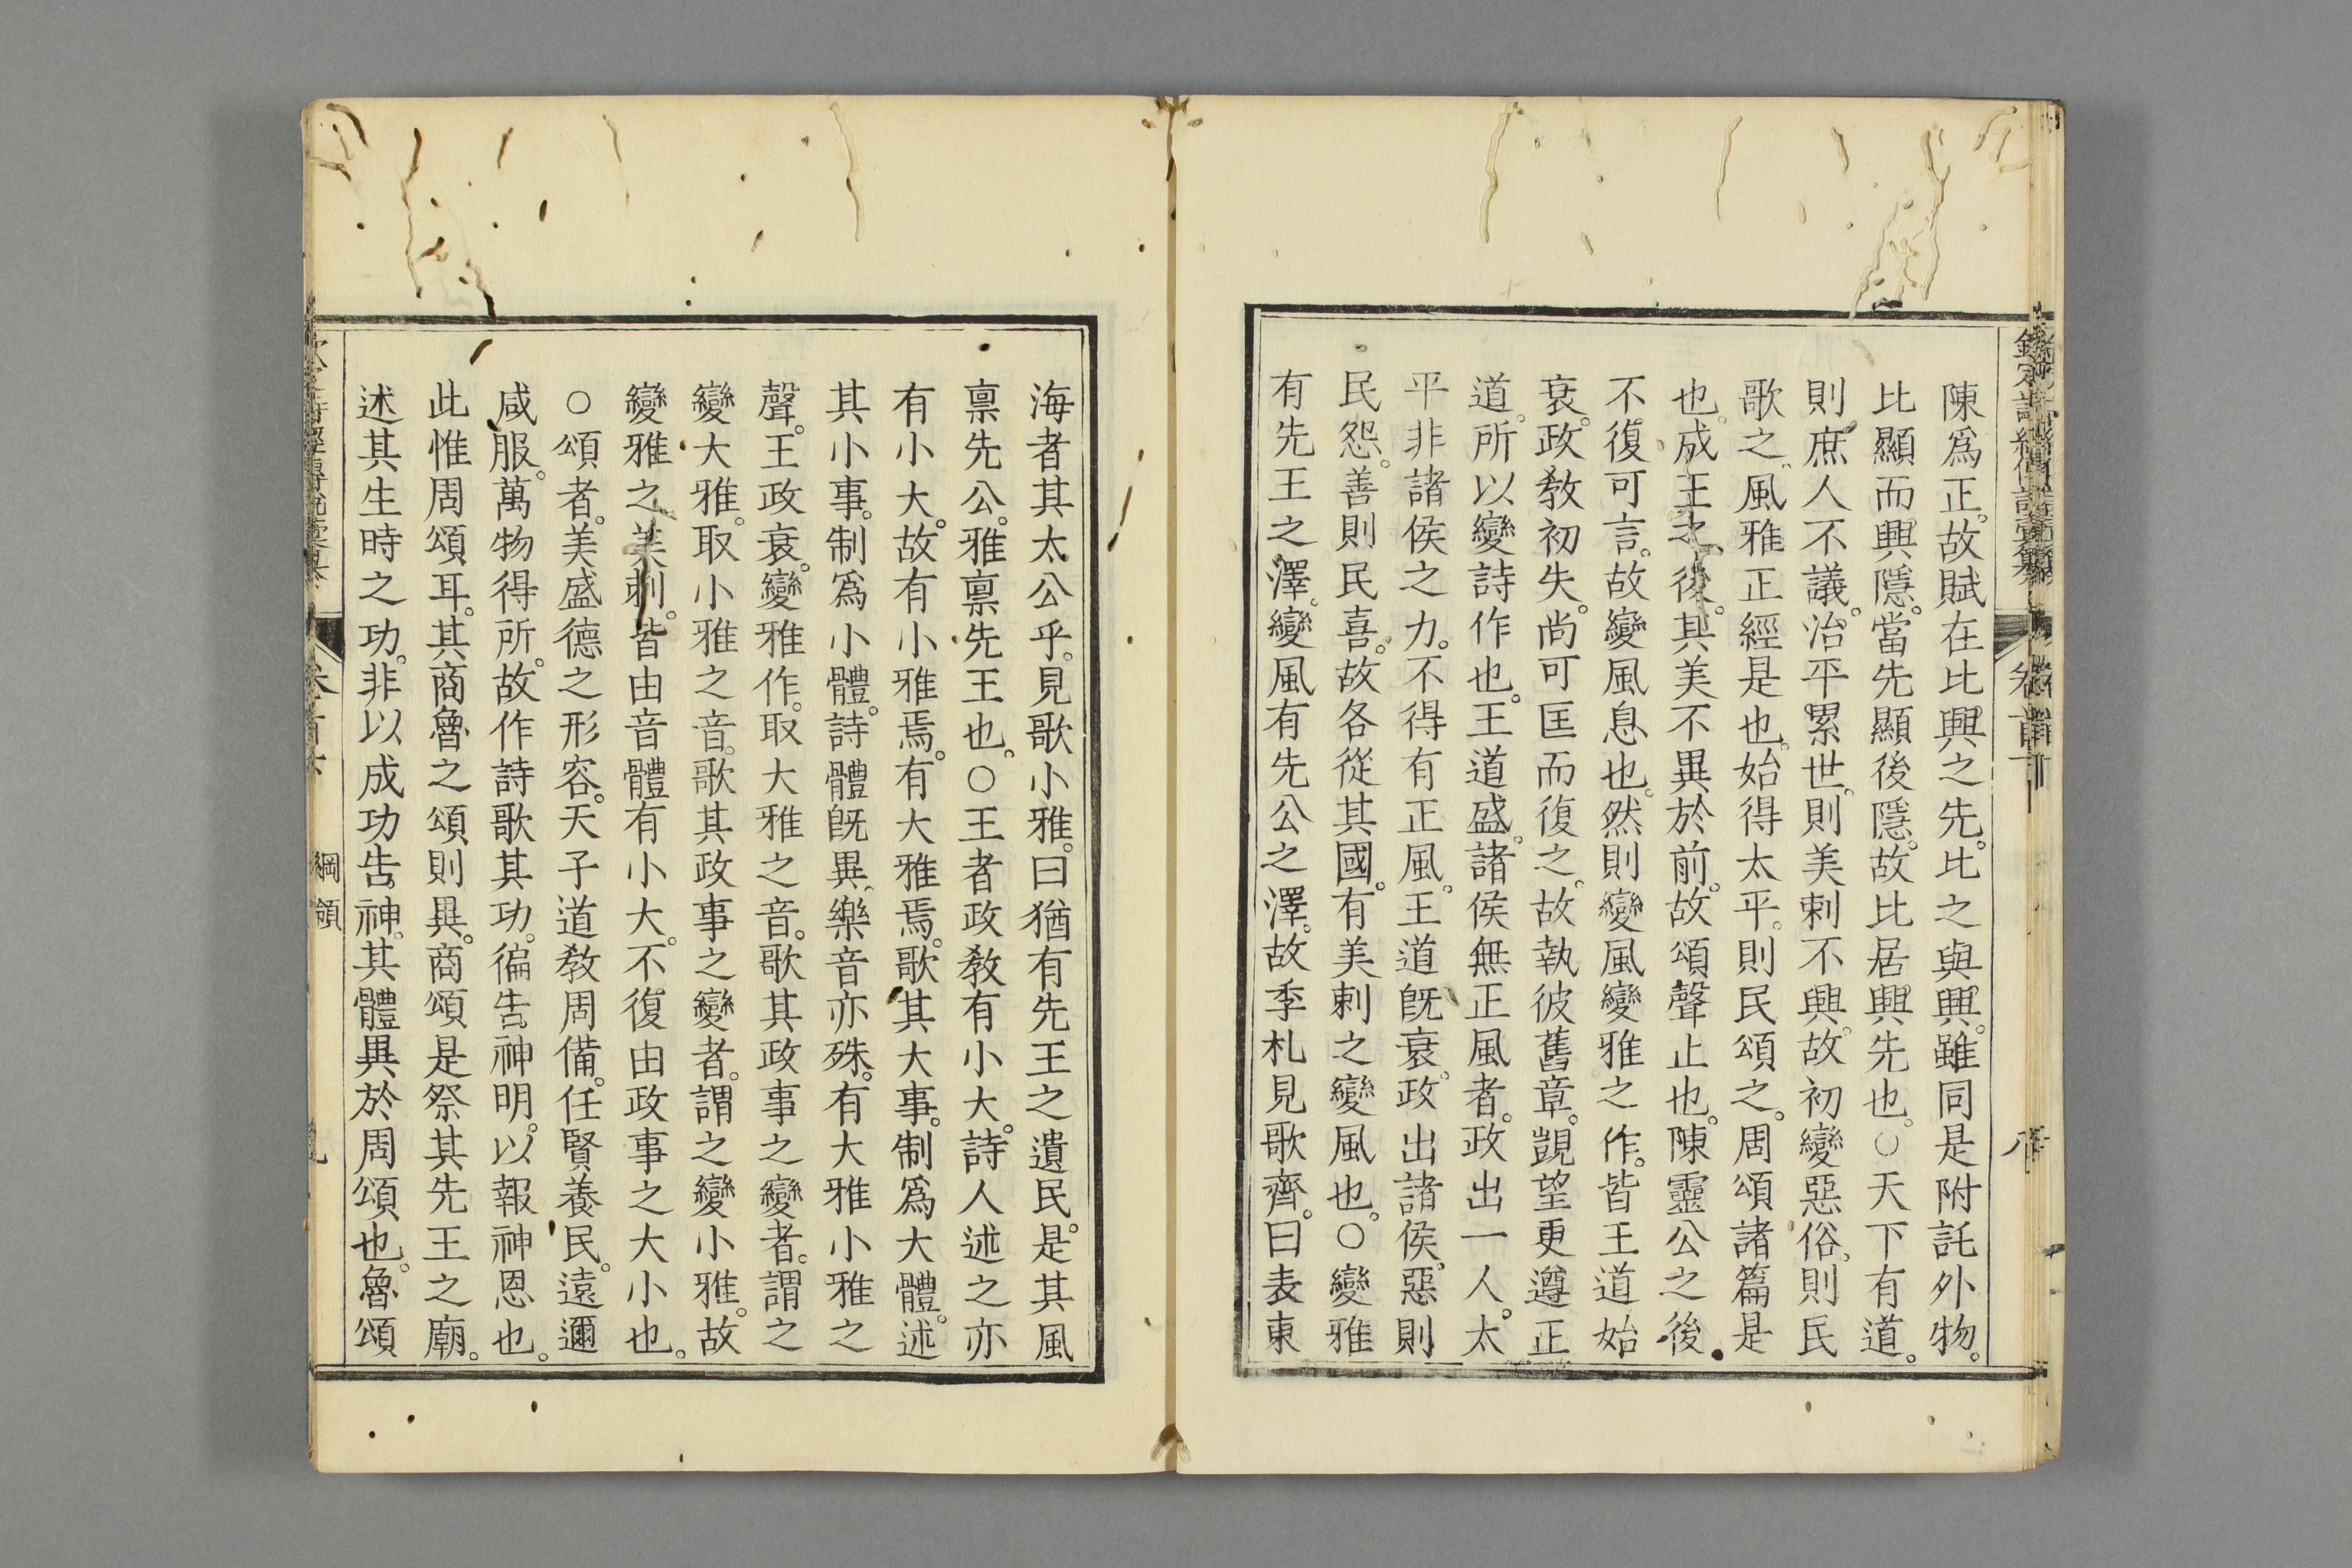 陳爲正。故賦在比興之先。比之與興。雖同是附託外物。
比顯而興隱。當先顯後隱。故比居興先也。○天下有道。
則庶人不議。治平累世。則美刺不興。故初變惡俗、則民
歌之、風雅正經是也。始得太平。則民頌之。周頌諸篇是
也。成王之後。其美不異於前。故頌聲止也。陳靈公之後
不復可言。故變風息也。然則變風變雅之作。皆王道始
衰。政敎初失。尚可匡而復之。故執彼舊章。覬望更遵正
道。所以變詩作也。王道盛。諸侯無正風者。政出一人。太
平非諸侯之力。不得有正風。王道旣衰。政出諸侯。惡則
民怨。善則民喜。故各從其國。有美刺之變風也。○變雅
有先王之澤。變風有先公之澤。故季札見歌齊。曰表東
海者其太公乎。見歌小雅。曰猶有先王之遺民。是其風
禀先公。雅禀先王也。○王者政敎有小大。詩人述之亦
有小大。故有小雅焉。有大雅焉。歌其大事。制爲大體。述
其小事。制爲小體。詩體旣異、樂音亦殊。有大雅小雅之
聲。王政衰。變雅作。取大雅之音。歌其政事之變者。謂之
變大雅。取小雅之音。歌其政事之變者。謂之變小雅。故
變雅之美刺。皆由音體有小大。不復由政事之大小也。
○頌者。美盛德之形容。天子道敎周備。任賢養民。遠邇
咸服。萬物得所。故作詩歌其功。徧告神明。以報神恩也。
此惟周頌耳。其商魯之頌則異。商頌是祭其先王之廟。
述其生時之功。非以成功告神。其體異於周頌也。魯頌
綱領